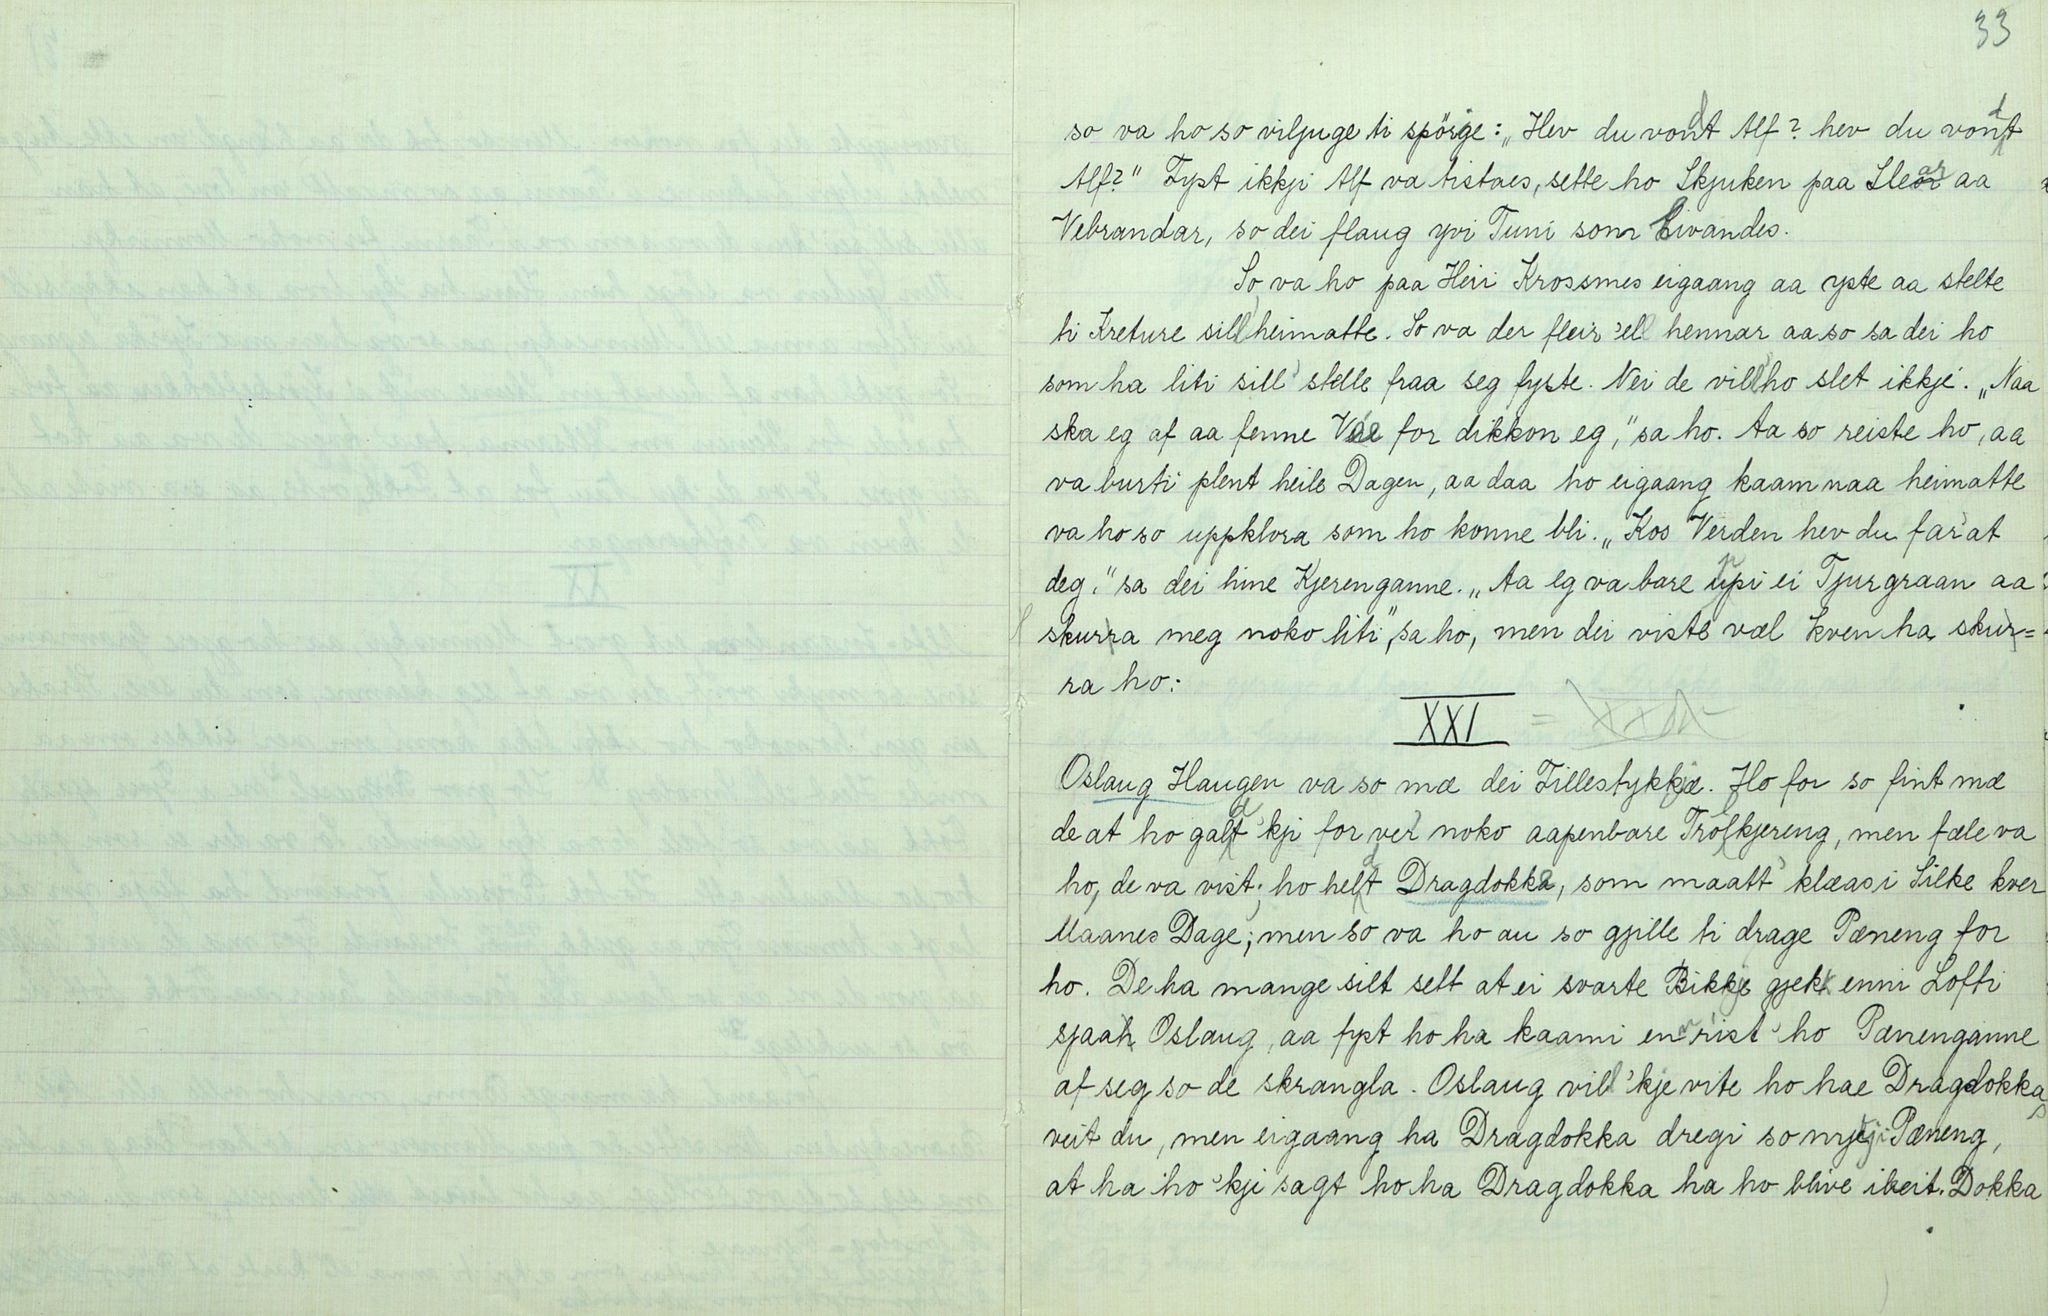 33
so va ho so viljuge ti spörje: „Hev du vondt Alf? hev du vondt
Alf?" Fyst ikkji Alf va tistaes, sette ho Skjuken paa Slear aa
Vebrandar, so dei flaug yvi Tuni som Livandes.
So va ho paa Heii Krossmes eigaang aa yste aa stelte
ti Kreture sill heimatte. So va der fleir 'ell hennar aa so sa dei ho
som ha liti sill' stelle fraa seg fyste. Nei de vill' ho slet ikkje. „Naa
ska eg af aa fenne Vée for dikkon eg," sa ho. Aa so reiste ho, aa
va burti plent heile Dagen, aa daa ho eigaang kaam naa heimatte
va ho so uppklora som ho konne bli. „Kos Verden hev du far'at
deg." sa dei hine Kjerenganne. „Aa eg va bare uppi ei Tjurgraan aa
skurra meg noko liti", sa ho, men dei viste væl kven ha skur=
ra ho.
XXI = XXII
Oslaug Haugen va so mæ dei Fillestykkjæ. Ho for so fint mæ
de at ho galdt 'kji for ver' noko aapenbare Trollkjereng, men fæle va
ho, de va vist; ho heldt Dragdokka, som maatt' klæas i Silke kver
Maanes Dage; men so va ho au so gjille ti drage Pæneng for
ho. De ha mange silt sett at ei svarte Bikkje gjekk enni Lofti
sjaah Oslaug, aa fyst ho ha kaami enn rist' ho Pænenganne
af seg so de skrangla. Oslaug vill 'kje vite ho hae Dragdokka,
veit du, men eigaang ha Dragdokka dregi so mykji Pæneng,
at ha ho 'kji sagt ho ha Dragdokka ha ho blive ibeit. Dokka